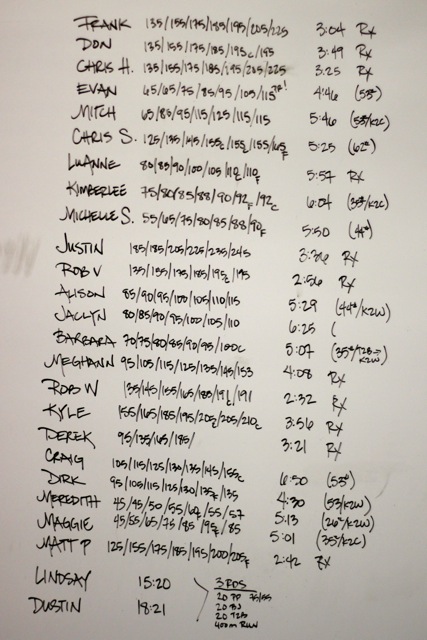 FRANK 135/155/175/185/195/205/225 3:04 Rx
DON 135/155/175/185/195c/195 3:49 Rx
CHRIS H. 135/155/175/185/195/205/225 3:25 Rx
EVAN 65/65/75/85/95/105/115 PR! 4:46 (53#)
MITCH 65/85/95/115/125/115/115 5:46 (53/K2C)
CHRIS S. 5:25 (62#)
LUANNE 80/85/90/100/105/110c/110F 5:57 Rx
KIMBERLEE 75/80/85/88/90/92F/92c 6:04 (35#/K2C)
MICHELLE S. 55/65/75/80/85/88/90F 5:50 (44#)
JUSTIN 185/185/205/225/235/245 3:36 Rx
ROB V 135/155/175/185/195c/195 2:56 Rx
ALISON 85/90/95/100/105/110/115 5:29 (44#/K2W)
JACLYN 80/85/90/95/100/105/110 6:25 (
BARBARA 70/75/80/85/90/95/100c 5:07 (35#/T2B→ K2W)
MEGHANN 95/105/115/125/135/145/153 4:08 Rx
ROB W 135/145/155/165/185/191c/191 2:32 Rx
KYLE 155/165/185/195/205c/205/210c 3:56 Rx
DEREK 95/135/165/185/ 3:21 Rx
CRAIG 105/115/125/130/135/145/155c
DIRK 95/105/115/125/130/135F/135 6:50 (53#)
MEREDITH 45/45/50/55/60F/55/57 4:30 (53/K2W)
MAGGIE 45/55/65/75/85/95F/85 5:13 (26#/K2W)
MATT P 125/155/175/185/195/200/205F 5:01 (35#/K2C)
2:42 Rx
LINDSAY 15:20 3 RDS
DUSTIN 18:21 20 PP 75/55
20 BJ
20 T2B
400m RUN